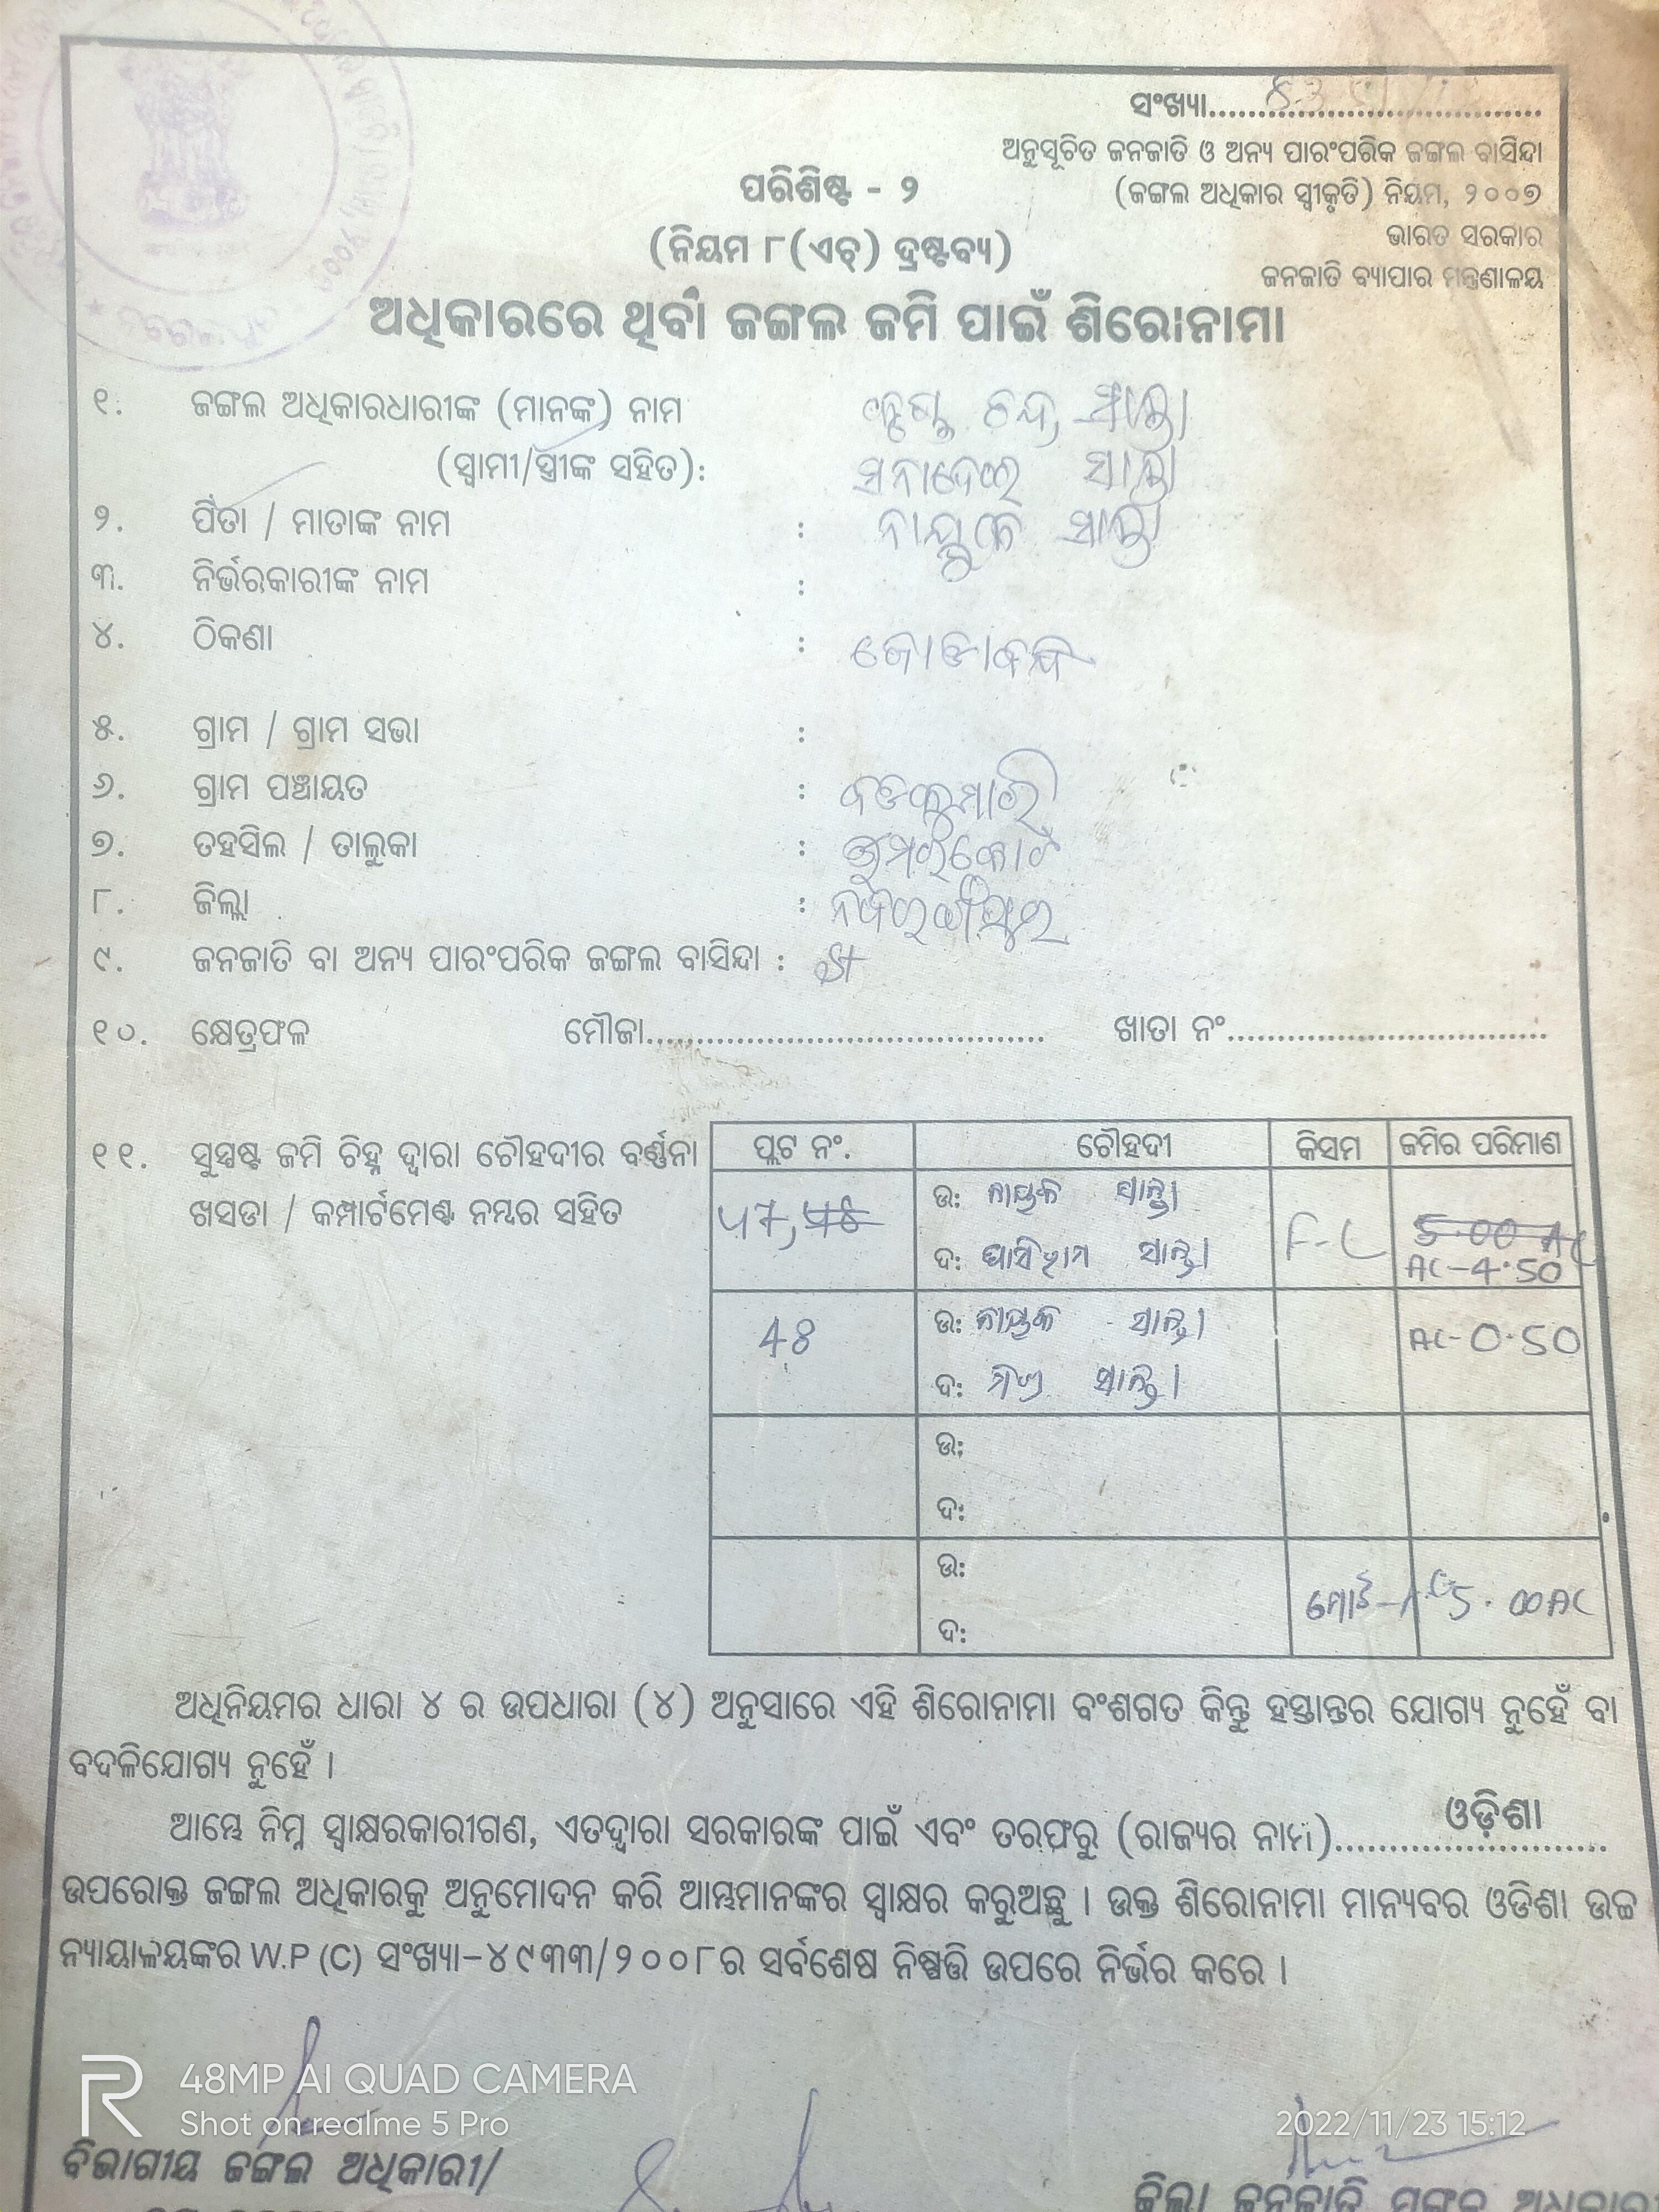 ସଂଖ୍ୟା....................................
ଅନୁସୂଚିତ ଜନଜାତି ଓ ଅନ୍ୟ ପାରଂପରିକ ଜଙ୍ଗଲ ବାସିନ୍ଦା
(ଜଙ୍ଗଲ ଅଧିକାର ସ୍ୱୀକୃତି) ନିୟମ, ୨୦୦୭
ଭାରତ ସରକାର
ଜନଜାତି ବ୍ୟାପାର ମନ୍ତ୍ରଣାଳୟ
ପରିଶିଷ୍ଟ - ୨
(ନିୟମ ୮(ଏଚ୍) ଦ୍ରଷ୍ଟବ୍ୟ)
ଅଧିକାରରେ ଥିବା ଜଙ୍ଗଲ ଜମି ପାଇଁ ଶିରୋନାମା
୧. ଜଙ୍ଗଲ ଅଧିକାରଧାରୀଙ୍କ (ମାନଙ୍କ) ନାମ ଚନ୍ଦ୍ର ସାନ୍ତା
(ସ୍ୱାମୀ/ସ୍ତ୍ରୀଙ୍କ ସହିତ): ସାନ୍ତା
୨. ପିତା / ମାତାଙ୍କ ନାମ : ସାନ୍ତା
୩. ନିର୍ଭରକାରୀଙ୍କ ନାମ :
୪. ଠିକଣା :
୫. ଗ୍ରାମ / ଗ୍ରାମ ସଭା :
୬. ଗ୍ରାମ ପଞ୍ଚାୟତ :
୭. ତହସିଲ / ତାଲୁକା : ଉମରକୋଟ
୮. ଜିଲ୍ଲା : ନବରଙ୍ଗପୁର
୯. ଜନଜାତି ବା ଅନ୍ୟ ପାରଂପରିକ ଜଙ୍ଗଲ ବାସିନ୍ଦା :
୧୦. କ୍ଷେତ୍ରଫଳ ମୌଜା........................................ ଖାତା ନଂ................................
୧୧. ସୁସ୍ପଷ୍ଟ ଜମି ଚିହ୍ନ ଦ୍ୱାରା ଚୌହଦୀର ବର୍ଣ୍ଣନା
ଖସଡା / କମ୍ପାର୍ଟମେଣ୍ଟ ନମ୍ବର ସହିତ
ପ୍ଲଟ ନଂ. ଚୌହଦୀ କିସମ ଜମିର ପରିମାଣ
47, 48 ଉ: ନାୟକ ସାନ୍ତା F-C 5.00 AC
ଦ: ସାନ୍ତା AC-4.50
48 ଉ: ନାୟକ ସାନ୍ତା AC-0.50
ଦ: ସାନ୍ତା
ଉ:
ଦ:
ଉ: ମୋଟ- 5.00AC
ଦ:
ଅଧିନିୟମର ଧାରା ୪ ର ଉପଧାରା (୪) ଅନୁସାରେ ଏହି ଶିରୋନାମା ବଂଶଗତ କିନ୍ତୁ ହସ୍ତାନ୍ତର ଯୋଗ୍ୟ ନୁହେଁ ବା
ବଦଳିଯୋଗ୍ୟ ନୁହେଁ ।
ଆମ୍ଭେ ନିମ୍ନ ସ୍ୱାକ୍ଷରକାରୀଗଣ, ଏତଦ୍ୱାରା ସରକାରଙ୍କ ପାଇଁ ଏବଂ ତରଫରୁ (ରାଜ୍ୟର ନାମ)..........ଓଡ଼ିଶା..........
ଉପରୋକ୍ତ ଜଙ୍ଗଲ ଅଧିକାରକୁ ଅନୁମୋଦନ କରି ଆମ୍ଭମାନଙ୍କର ସ୍ୱାକ୍ଷର କରୁଅଛୁ । ଉକ୍ତ ଶିରୋନାମା ମାନ୍ୟବର ଓଡିଶା ଉଚ୍ଚ
ନ୍ୟାୟାଳୟଙ୍କର W.P (C) ସଂଖ୍ୟା-୪୯୩୩/୨୦୦୮ର ସର୍ବଶେଷ ନିଷ୍ପତ୍ତି ଉପରେ ନିର୍ଭର କରେ ।
48MP AI QUAD CAMERA
Shot on realme 5 Pro
2022/11/23 15:12
ବିଭାଗୀୟ ଜଙ୍ଗଲ ଅଧିକାରୀ/
ଜିଲ୍ଲା ଜନଜାତି ମଙ୍ଗଳ ଅଧିକାରୀ